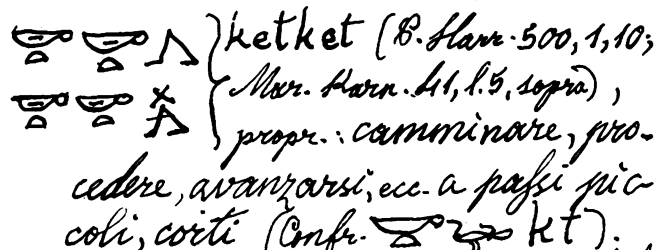 𓎡𓏏𓎡𓏏𓂻 } ketket (P. Harr. 500, 1, 10;
𓎡𓏏𓎡𓏏𓏴𓂻 Mar. Karn. l. 5, sopra),
propr.: camminare, pro-
cedere, avanzarsi, ecc. a paſsi pic-
coli, corti (Confr. kt).